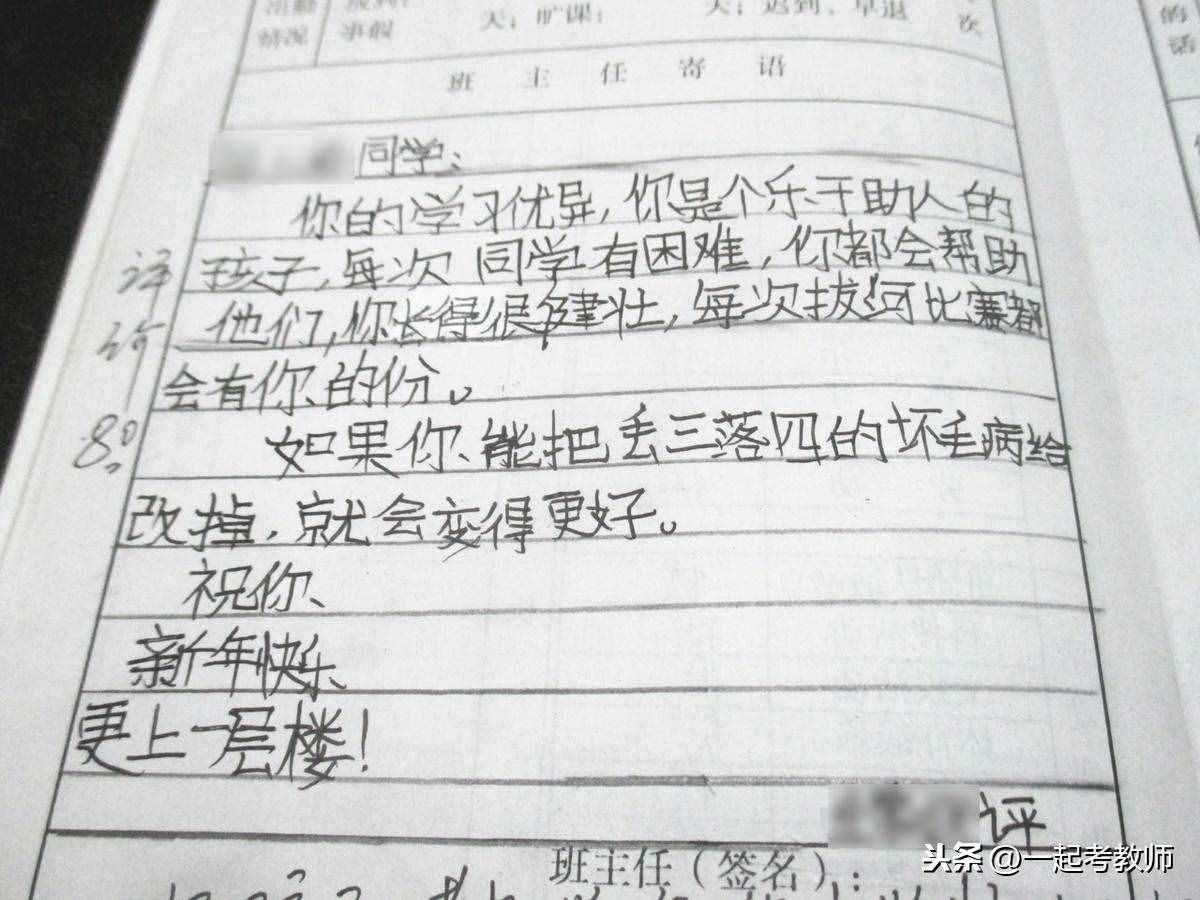 出勤
情况
事假
天；旷课：
天；迟到、早退
次
的
话
班主任寄语
同学：
你的学习优异，你是个乐于助人的
孩子，每次同学有困难，你都会帮助
他们，你长得很健壮，每次拔河比赛都
会有你的份。
如果你能把丢三落四的坏毛病给
改掉，就会变得更好。
祝你
新年快乐
更上一层楼！
评
评价
80
班主任（签名）：
头条 @一起考教师